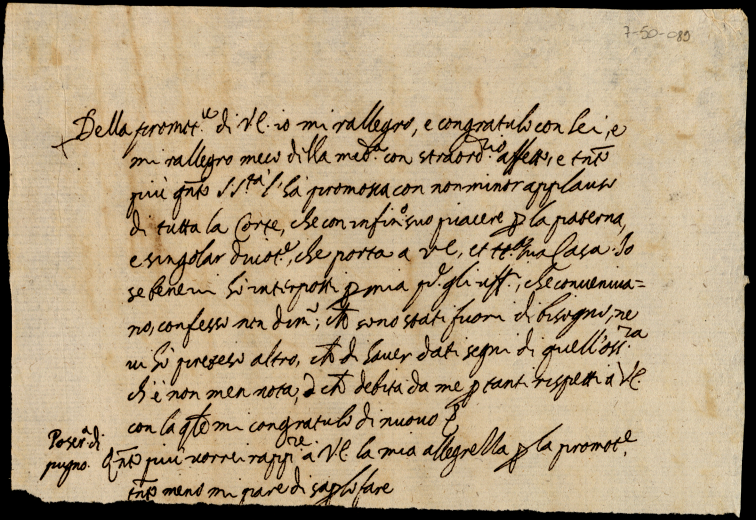 7-50-089
Della promot.ne di VE. io mi rallegro, e congratulo con lei, e
mi rallegro meco della med.a con straord.rio affetto, e tnto
più qnto S S.tà l'hà promossa con non minor applauso
di tutta la Corte, che con infin.o suo piacere p la paterna,
e singolar divot.e, che porta a VE, et tt.a sua Casa. Io
se bene vi hò interposti p mia p.te gli uff.i, che conveniva=
no, confesso non dim.o, che sono stati fuori di bisogno, ne
vi hò preteso altro, che di haver dati segni di quell'oss.za
ch'è non men nota, che debita da me p tanti rispetti à VE.
con la qle mi congratulo di nuovo
Poser.a di
pugno. Qnto più vorrei rapp.re à VE la mia allegrezza p la promot.e,
tnto meno mi pare di saplo fare